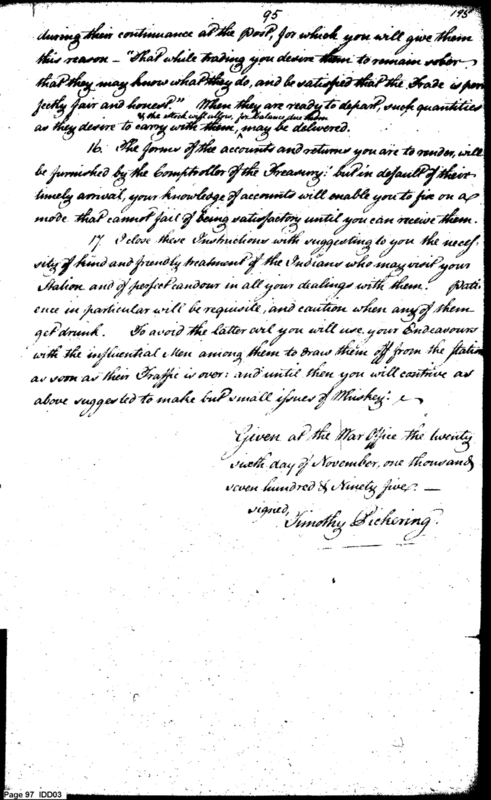 95
195
during their continuance at the Post, for which you will give them
this reason - "That while trading you desire them to remain sober
that they may know what they do, and be satisfied that the Trade is per
fectly fair and honest." When they are ready to depart, such quantities
& the stock will allow, for balance due them
as they desire to carry with them, may be delivered.
16. The forms of the accounts and returns you are to render, will
be furnished by the Comptroller of the Treasury: but in default of their
timely arrival, your knowledge of accounts will enable you to fix on a
mode that cannot fail of being satisfactory until you can receive them.
17. I close these Instructions with suggesting to you the neces
sity of kind and friendly treatment of the Indians who may visit your
Station and of perfect candour in all your dealings with them. Pati
ence in particular will be requisite, and caution when any of them
get drunk. To avoid the latter evil you will use your Endeavours
with the influential Men among them to draw them off from the Station
as soon as their Traffic is over: and until then you will contrive as
above suggested to make but small issues of Whiskey.
Given at the War Office the twenty
sixth day of November, one thousand
seven hundred & Ninety five. —
signed,
Timothy Pickering.
Page 97 IDD03